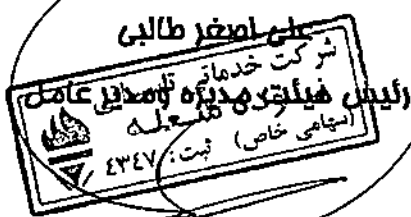 علی اصغر طالبی
رئیس هیئت مدیره و مدیر عامل
شرکت خدماتی
شعله
(سهامی خاص) ثبت: ۴۳۴۷